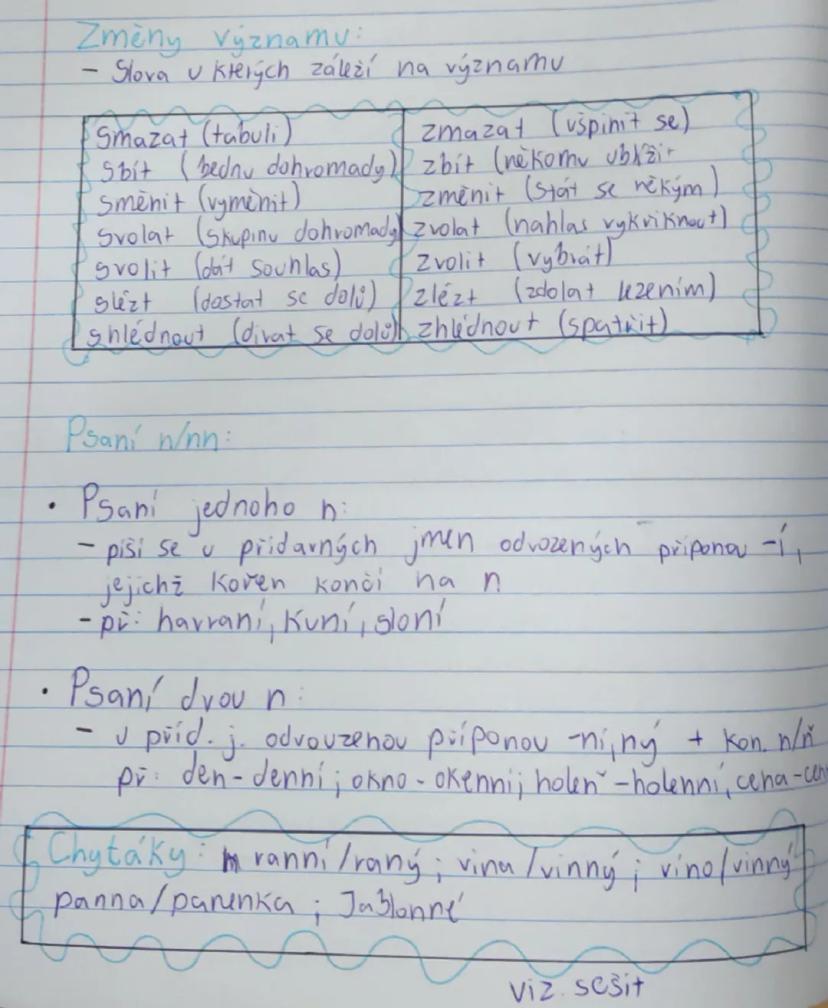 Změny významu:
- Slova u kterých záleží na významu
Smazat (tabuli) zmazat (ušpinit se)
Sbít (bednu dohromady) zbít (někomu ublížit
Směnit (vyměnit) změnit (stát se někým)
Svolat (skupinu dohromady) zvolat (nahlas vykřiknout)
svolit (dát souhlas) zvolit (vybrat)
slézt (dostat se dolů) zlézt (zdolat lezením)
shlédnout (dívat se dolů) zhlédnout (spatřit)
Psaní n/nn:
• Psaní jednoho n:
- píší se u přídavných jmen odvozených příponou -í,
jejichž kořen končí na n
- př: havraní, kuní, sloní
• Psaní dvou n:
- u příd. j. odvouzenou příponou -ní, ný + kon. n/ň
př: den-denní; okno-okenní; holeň-holenní, cena-cen
Chytáky: ranní/raný; vina/vinný; víno/vinný
panna/panenka; Jablonné
viz. sešit